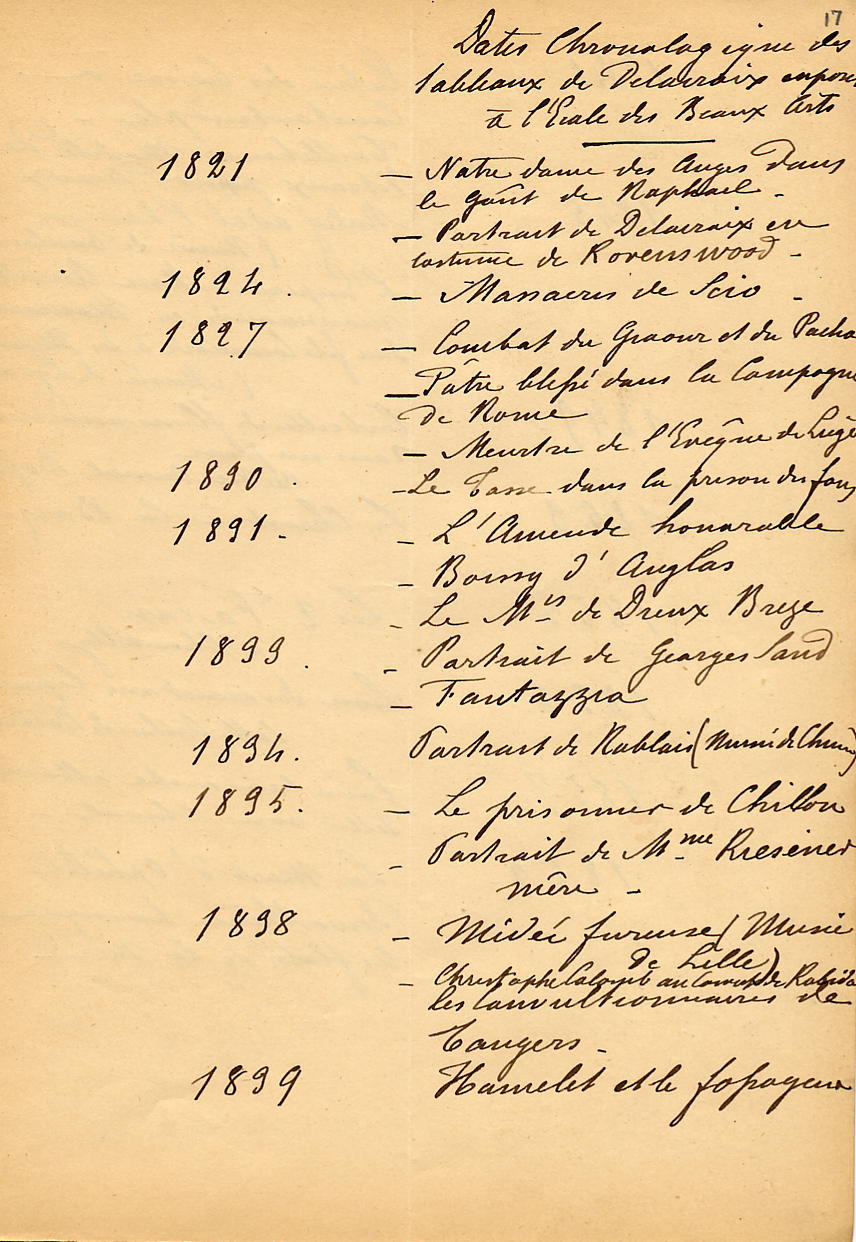 17
Dates Chronologique des
tableaux de Delacroix exposés
à l'École des Beaux Arts
1821 — Notre dame des Anges dans
le goût de Raphael -
— Portrait de Delacroix en
costume de Rovenswood -
1824. — Massacres de Scio -
1827 — Combat du Giaour et du Pacha
— Pâtre blessé dans la Campagne
de Rome
— Meurtre de l'Evêque de Liège
1830. - Le Tasse dans la prison des fous
1831. - L'Amende honorable
- Boissy d'Anglas
- Le Mis de Dreux Breze
1833. - Portrait de Georges Sand
- Fantazzia
1834. Portrait de Rablais (Musée de Chinon)
1835. — Le prisonnier de Chillon
- Portrait de Mme Riesener
mère -
1838 - Médée furieuse (Musée
de Lille)
- Christophe Colomb au Couvent de Rabida
les convultionnaires de
Tangers -
1839 Hamelet et le fossoyeur